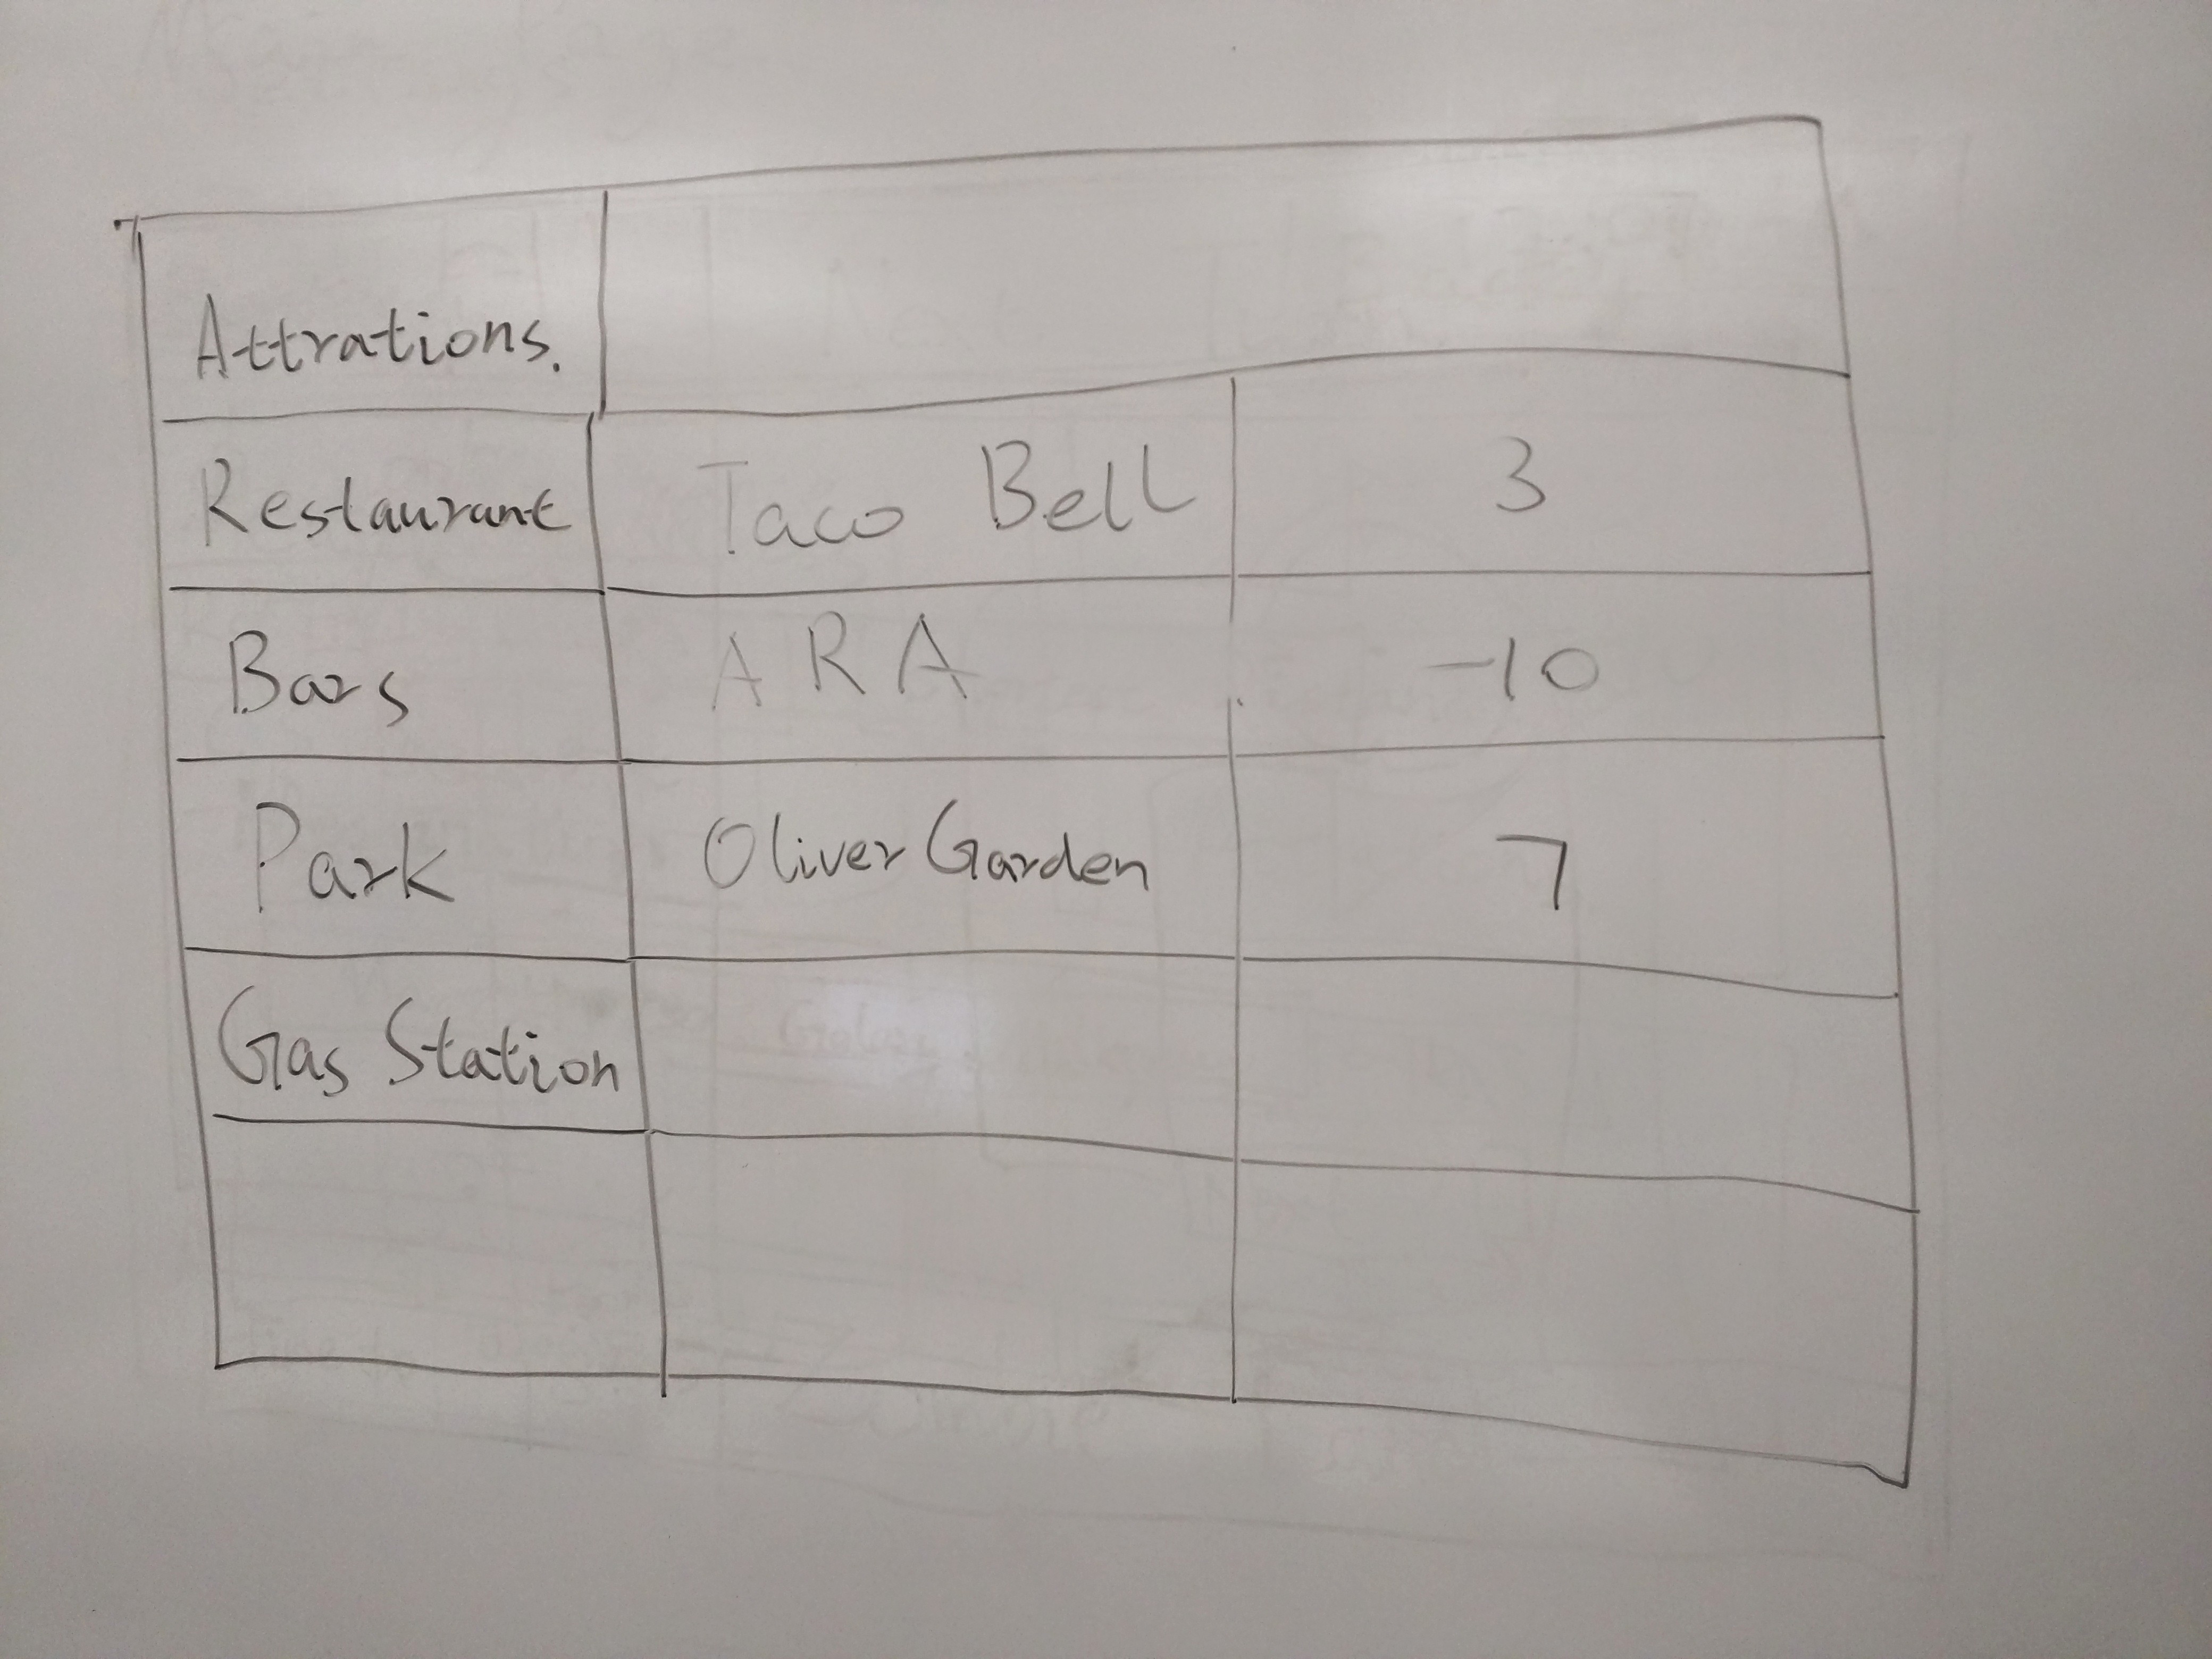 Attrations.
Restaurant Taco Bell 3
Bars ARA -10
Park Oliver Garden 7
Gas Station